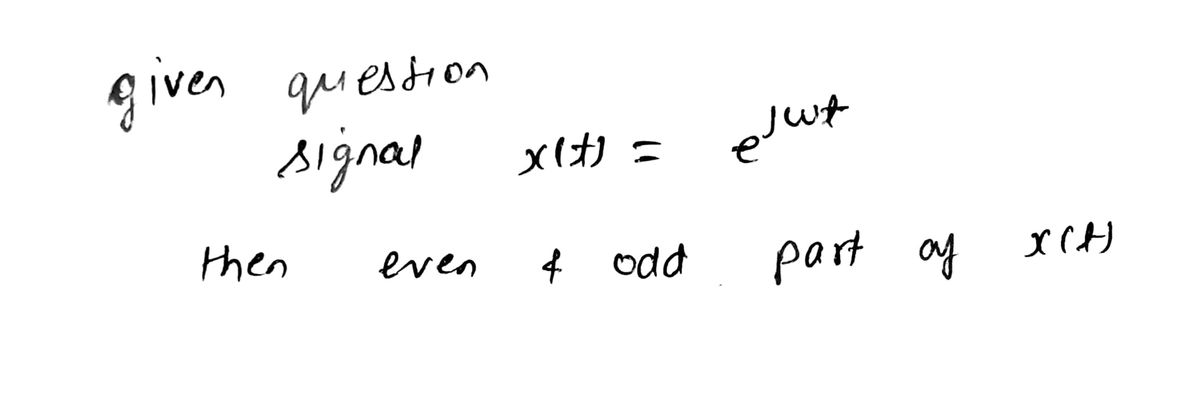 given question
signal x(t) = e^jwt
then even & odd part of x(t)